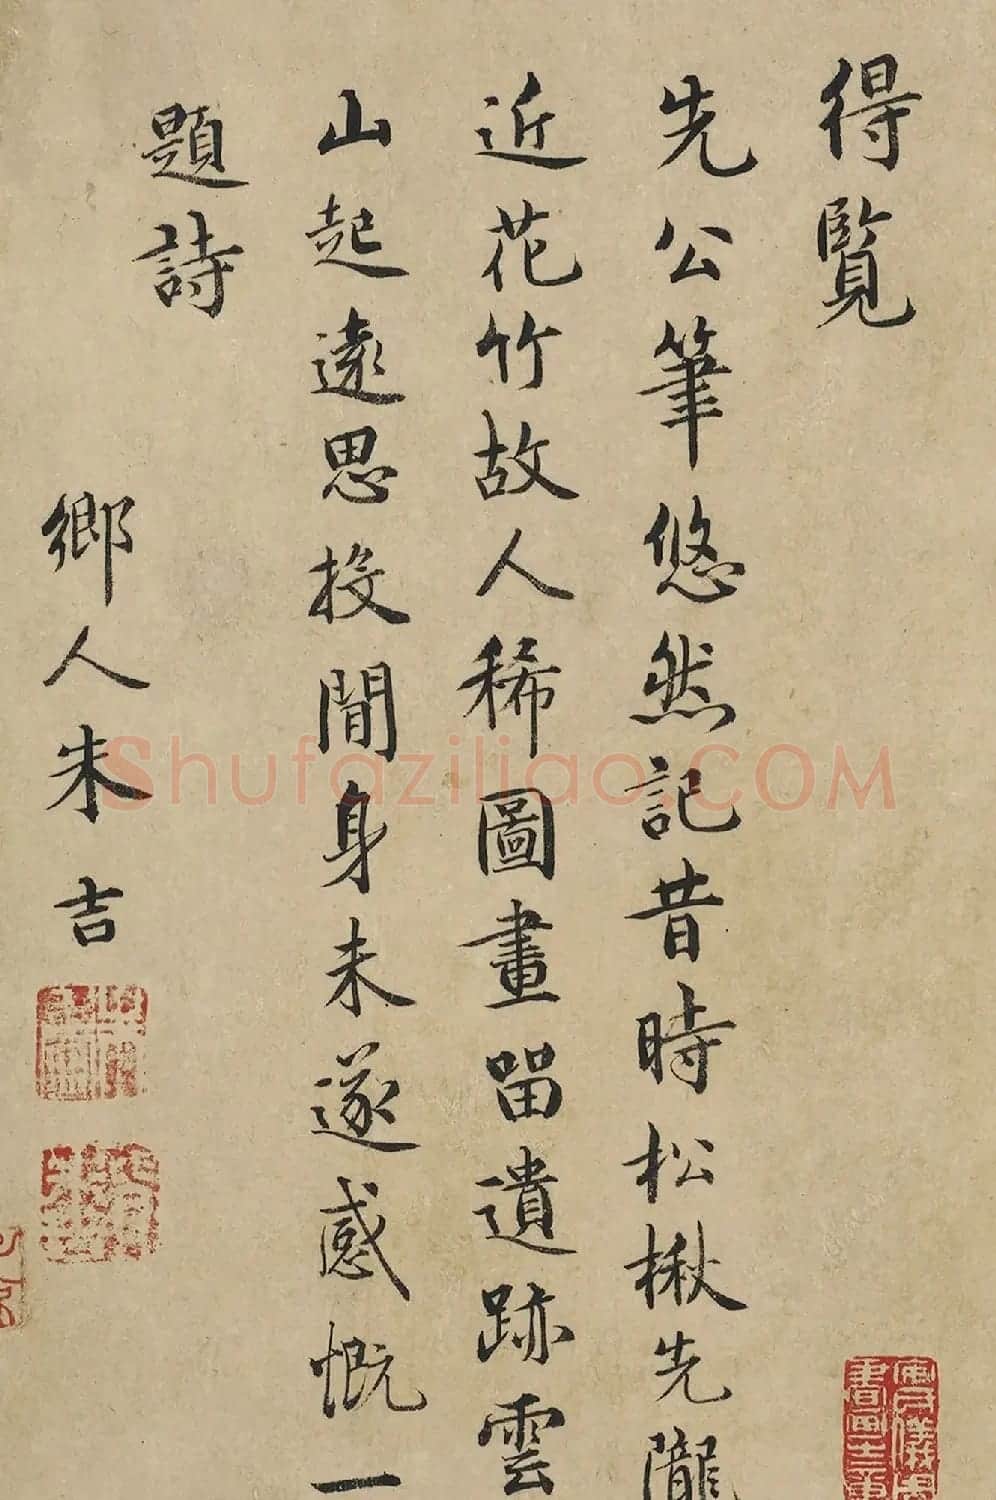 得覽
先公筆悠然記昔時松楸先隴
近花竹故人稀圖畫留遺跡雲
山起遠思投閒身未遂感慨一
題詩
鄉人朱吉
Shufaziliao.COM